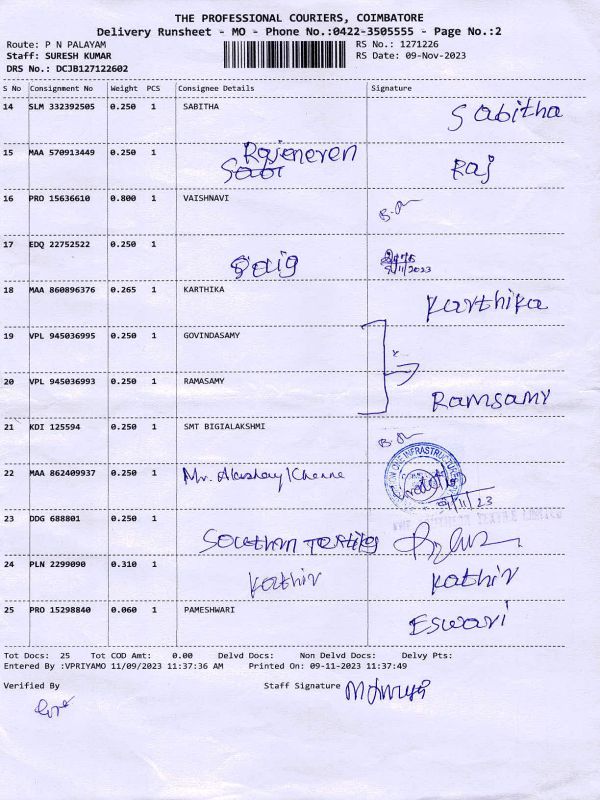 THE PROFESSIONAL COURIERS, COIMBATORE
Delivery Runsheet - MO - Phone No.:0422-3505555 - Page No.:2
Route: P N PALAYAM RS No.: 1271226
Staff: SURESH KUMAR RS Date: 09-Nov-2023
DRS No.: DCJB127122602
S No Consignment No Weight PCS Consignee Details Signature
14 SLM 332392505 0.250 1 SABITHA Sabitha
15 MAA 570913449 0.250 1 Raj
16 PRO 15636610 0.800 1 VAISHNAVI
17 EDQ 22752522 0.250 1
18 MAA 860896376 0.265 1 KARTHIKA Karthika
19 VPL 945036995 0.250 1 GOVINDASAMY
20 VPL 945036993 0.250 1 RAMASAMY Ramsamy
21 KDI 125594 0.250 1 SMT BIGIALAKSHMI
22 MAA 862409937 0.250 1 Mr. 9/11/23
23 DDG 688801 0.250 1 Southern
24 PLN 2299090 0.310 1 Kathir Kathir
25 PRO 15298840 0.060 1 PAMESHWARI Eswari
Tot Docs: 25 Tot COD Amt: 0.00 Delvd Docs: Non Delvd Docs: Delvy Pts:
Entered By :VPRIYAMO 11/09/2023 11:37:36 AM Printed On: 09-11-2023 11:37:49
Verified By Staff Signature